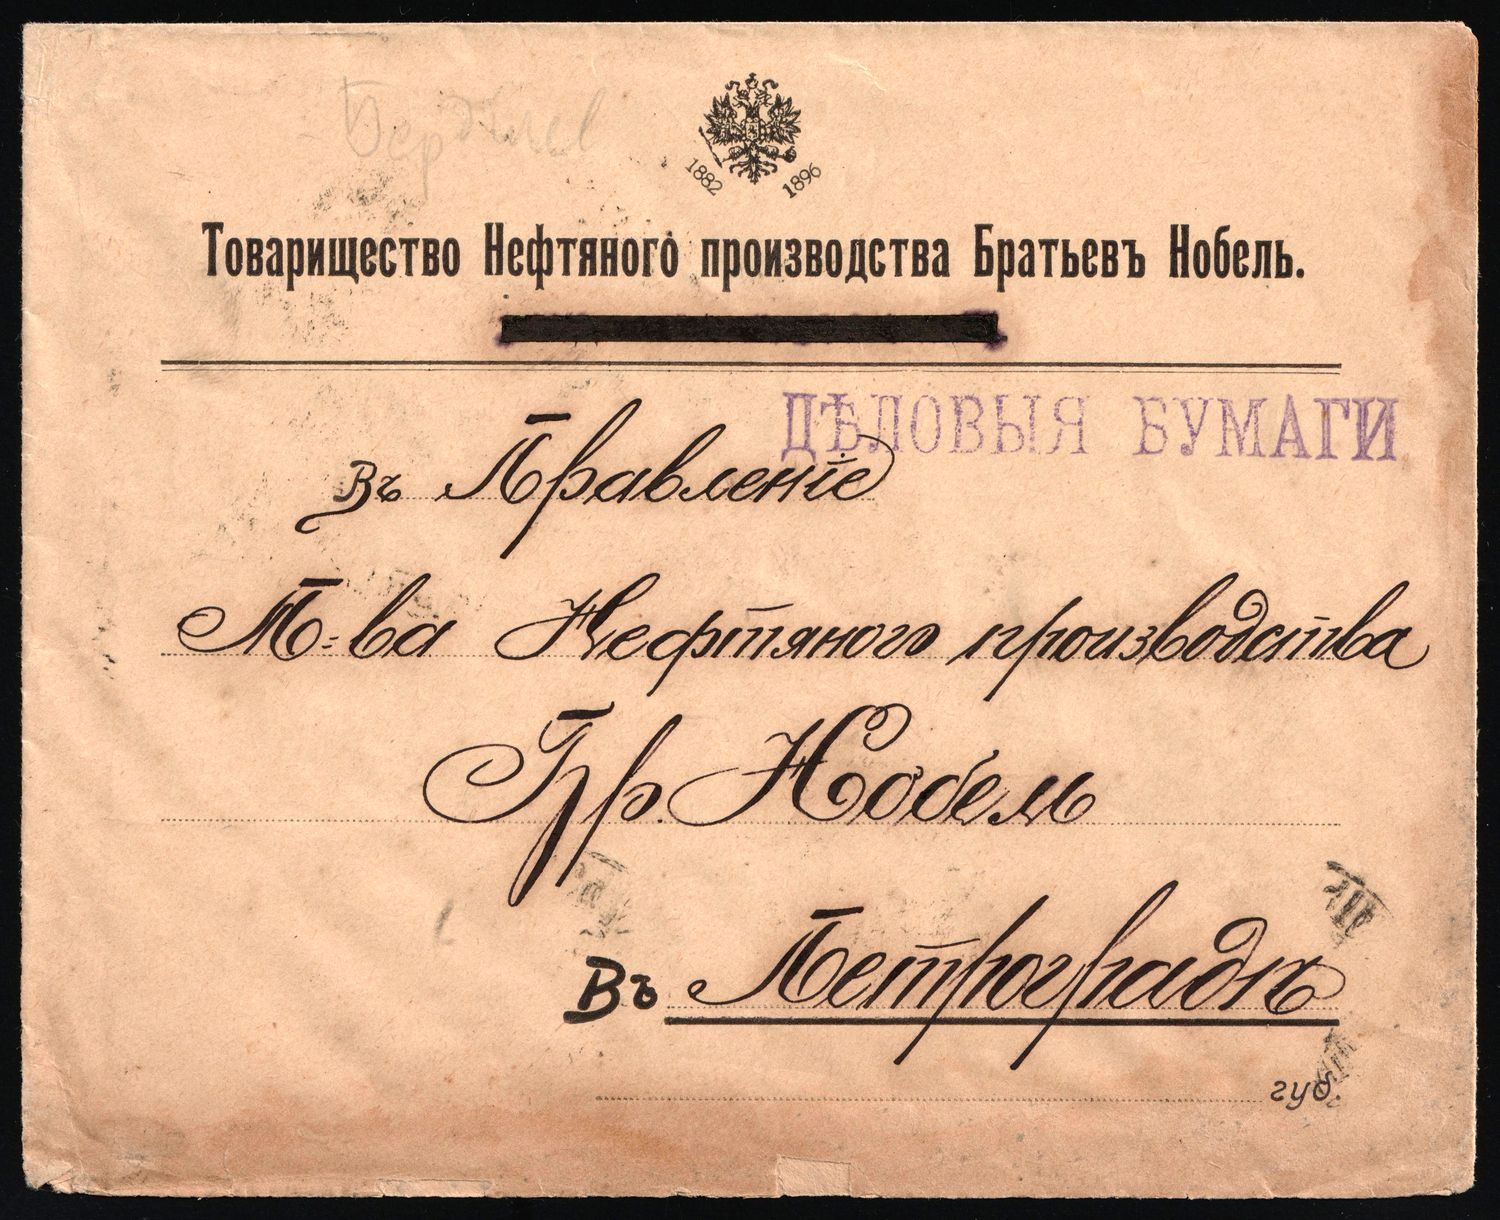 Бердичев
1882 1896
Товарищество Нефтяного производства Братьевъ Нобель.
ДѢЛОВЫЯ БУМАГИ
Въ Правленіе
Т-ва Нефтяного производства
Бр. Нобель
Въ Петроградъ
губ.